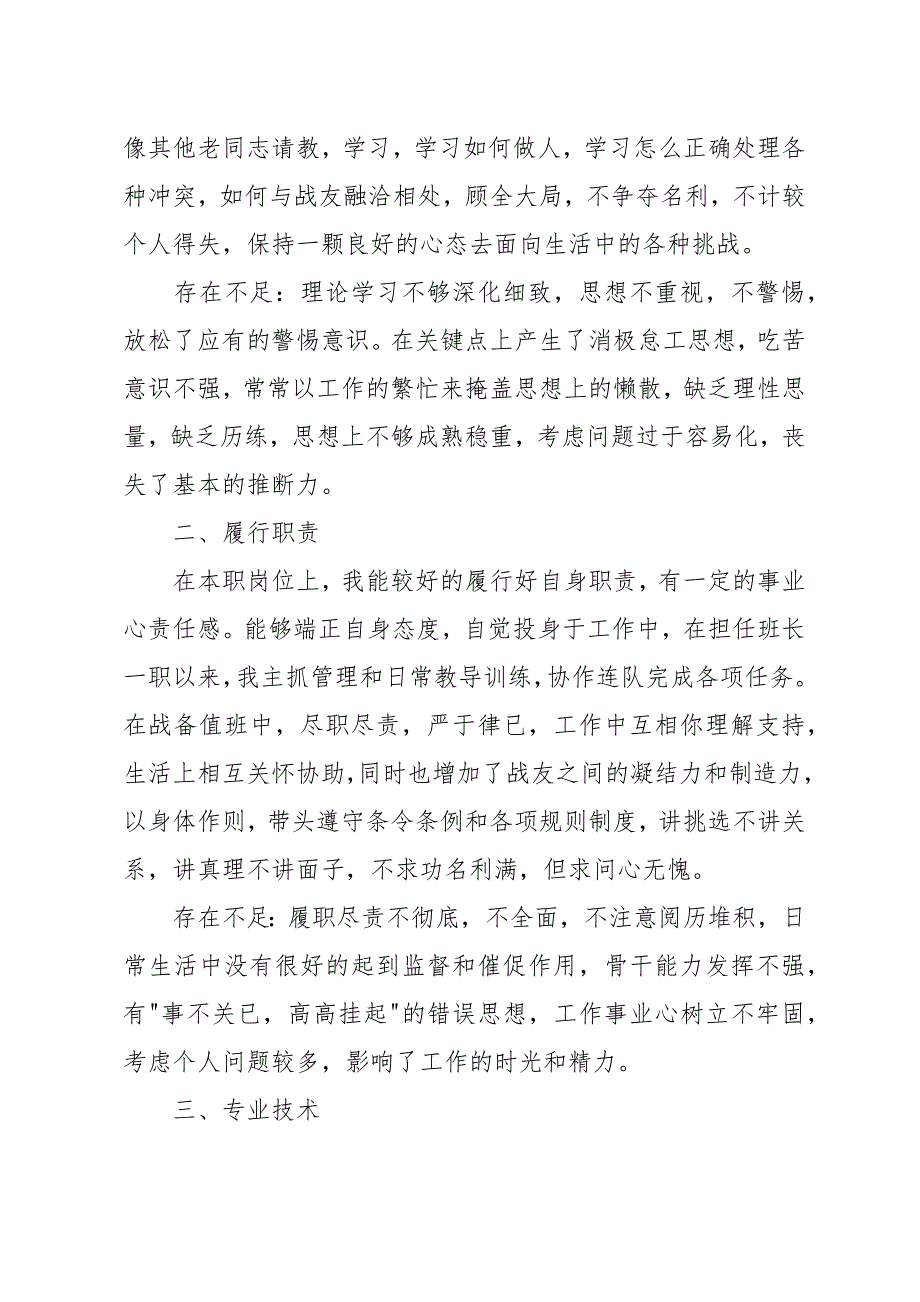 像其他老同志请教，学习，学习如何做人，学习怎么正确处理各
种冲突，如何与战友融洽相处，顾全大局，不争夺名利，不计较
个人得失，保持一颗良好的心态去面向生活中的各种挑战。
存在不足：理论学习不够深化细致，思想不重视，不警惕，
放松了应有的警惕意识。在关键点上产生了消极怠工思想，吃苦
意识不强，常常以工作的繁忙来掩盖思想上的懒散，缺乏理性思
量，缺乏历练，思想上不够成熟稳重，考虑问题过于容易化，丧
失了基本的推断力。
二、履行职责
在本职岗位上，我能较好的履行好自身职责，有一定的事业
心责任感。能够端正自身态度，自觉投身于工作中，在担任班长
一职以来，我主抓管理和日常教导训练，协作连队完成各项任务。
在战备值班中，尽职尽责，严于律已，工作中互相你理解支持，
生活上相互关怀协助，同时也增加了战友之间的凝结力和制造力，
以身体作则，带头遵守条令条例和各项规则制度，讲挑选不讲关
系，讲真理不讲面子，不求功名利满，但求问心无愧。
存在不足：履职尽责不彻底，不全面，不注意阅历堆积，日
常生活中没有很好的起到监督和催促作用，骨干能力发挥不强，
有"事不关已，高高挂起"的错误思想，工作事业心树立不牢固，
考虑个人问题较多，影响了工作的时光和精力。
三、专业技术